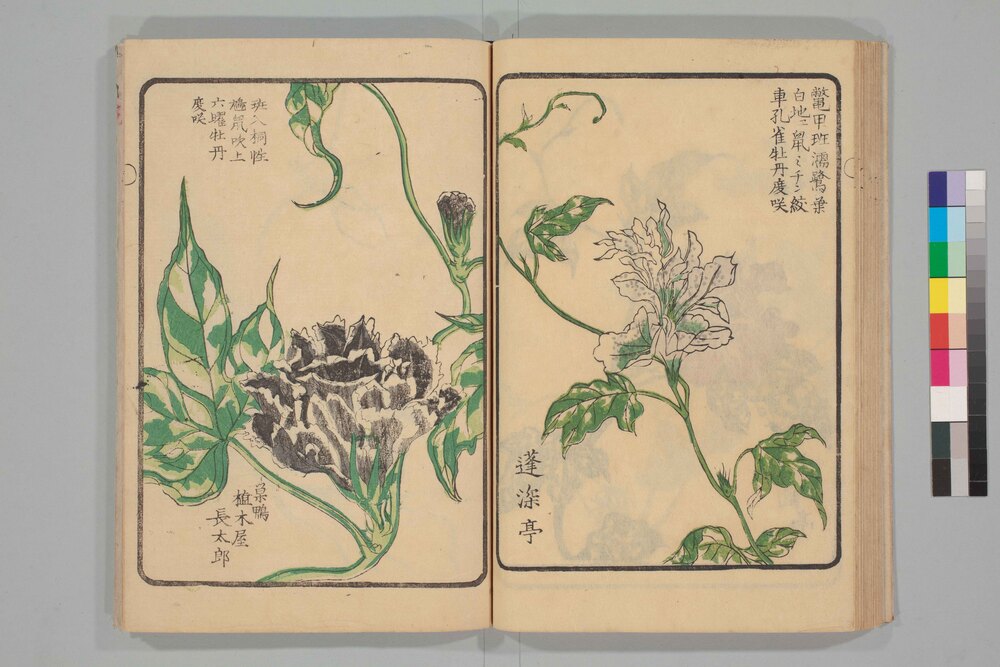 鼈甲班濡鷺葉
白地ニ鼠ミヂン絞
車孔雀牡丹度咲
蓬深亭
班入桐性
鼠吹上
六曜牡丹
度咲
巣鴨
植木屋
長太郎